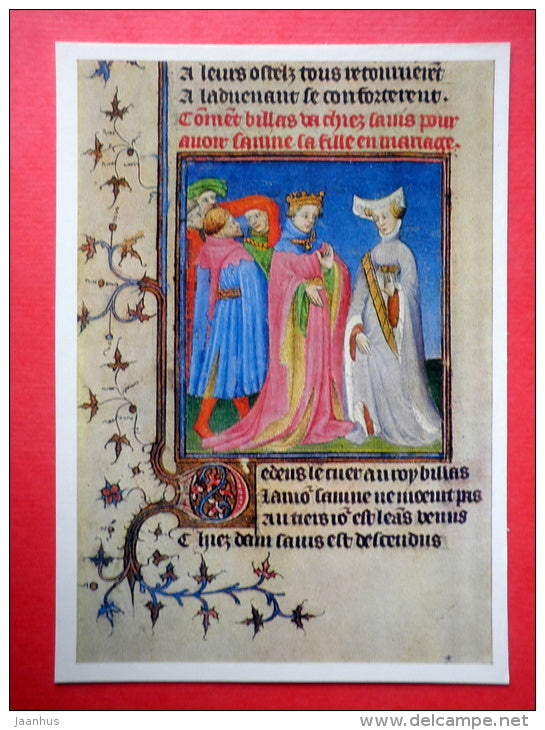 A leurs ostelz tous retournerent
A laduenant se conforterent.
Com̄ēt billas va chiez sauis pour
auoir sanine sa fille en mariage.
Dedens le cuer au roy billas
Lamō sanine ne meent pas
Au tiers iō est leās venus
Chiez dam sauis est descendus
jaanhus
www.delcampe.net